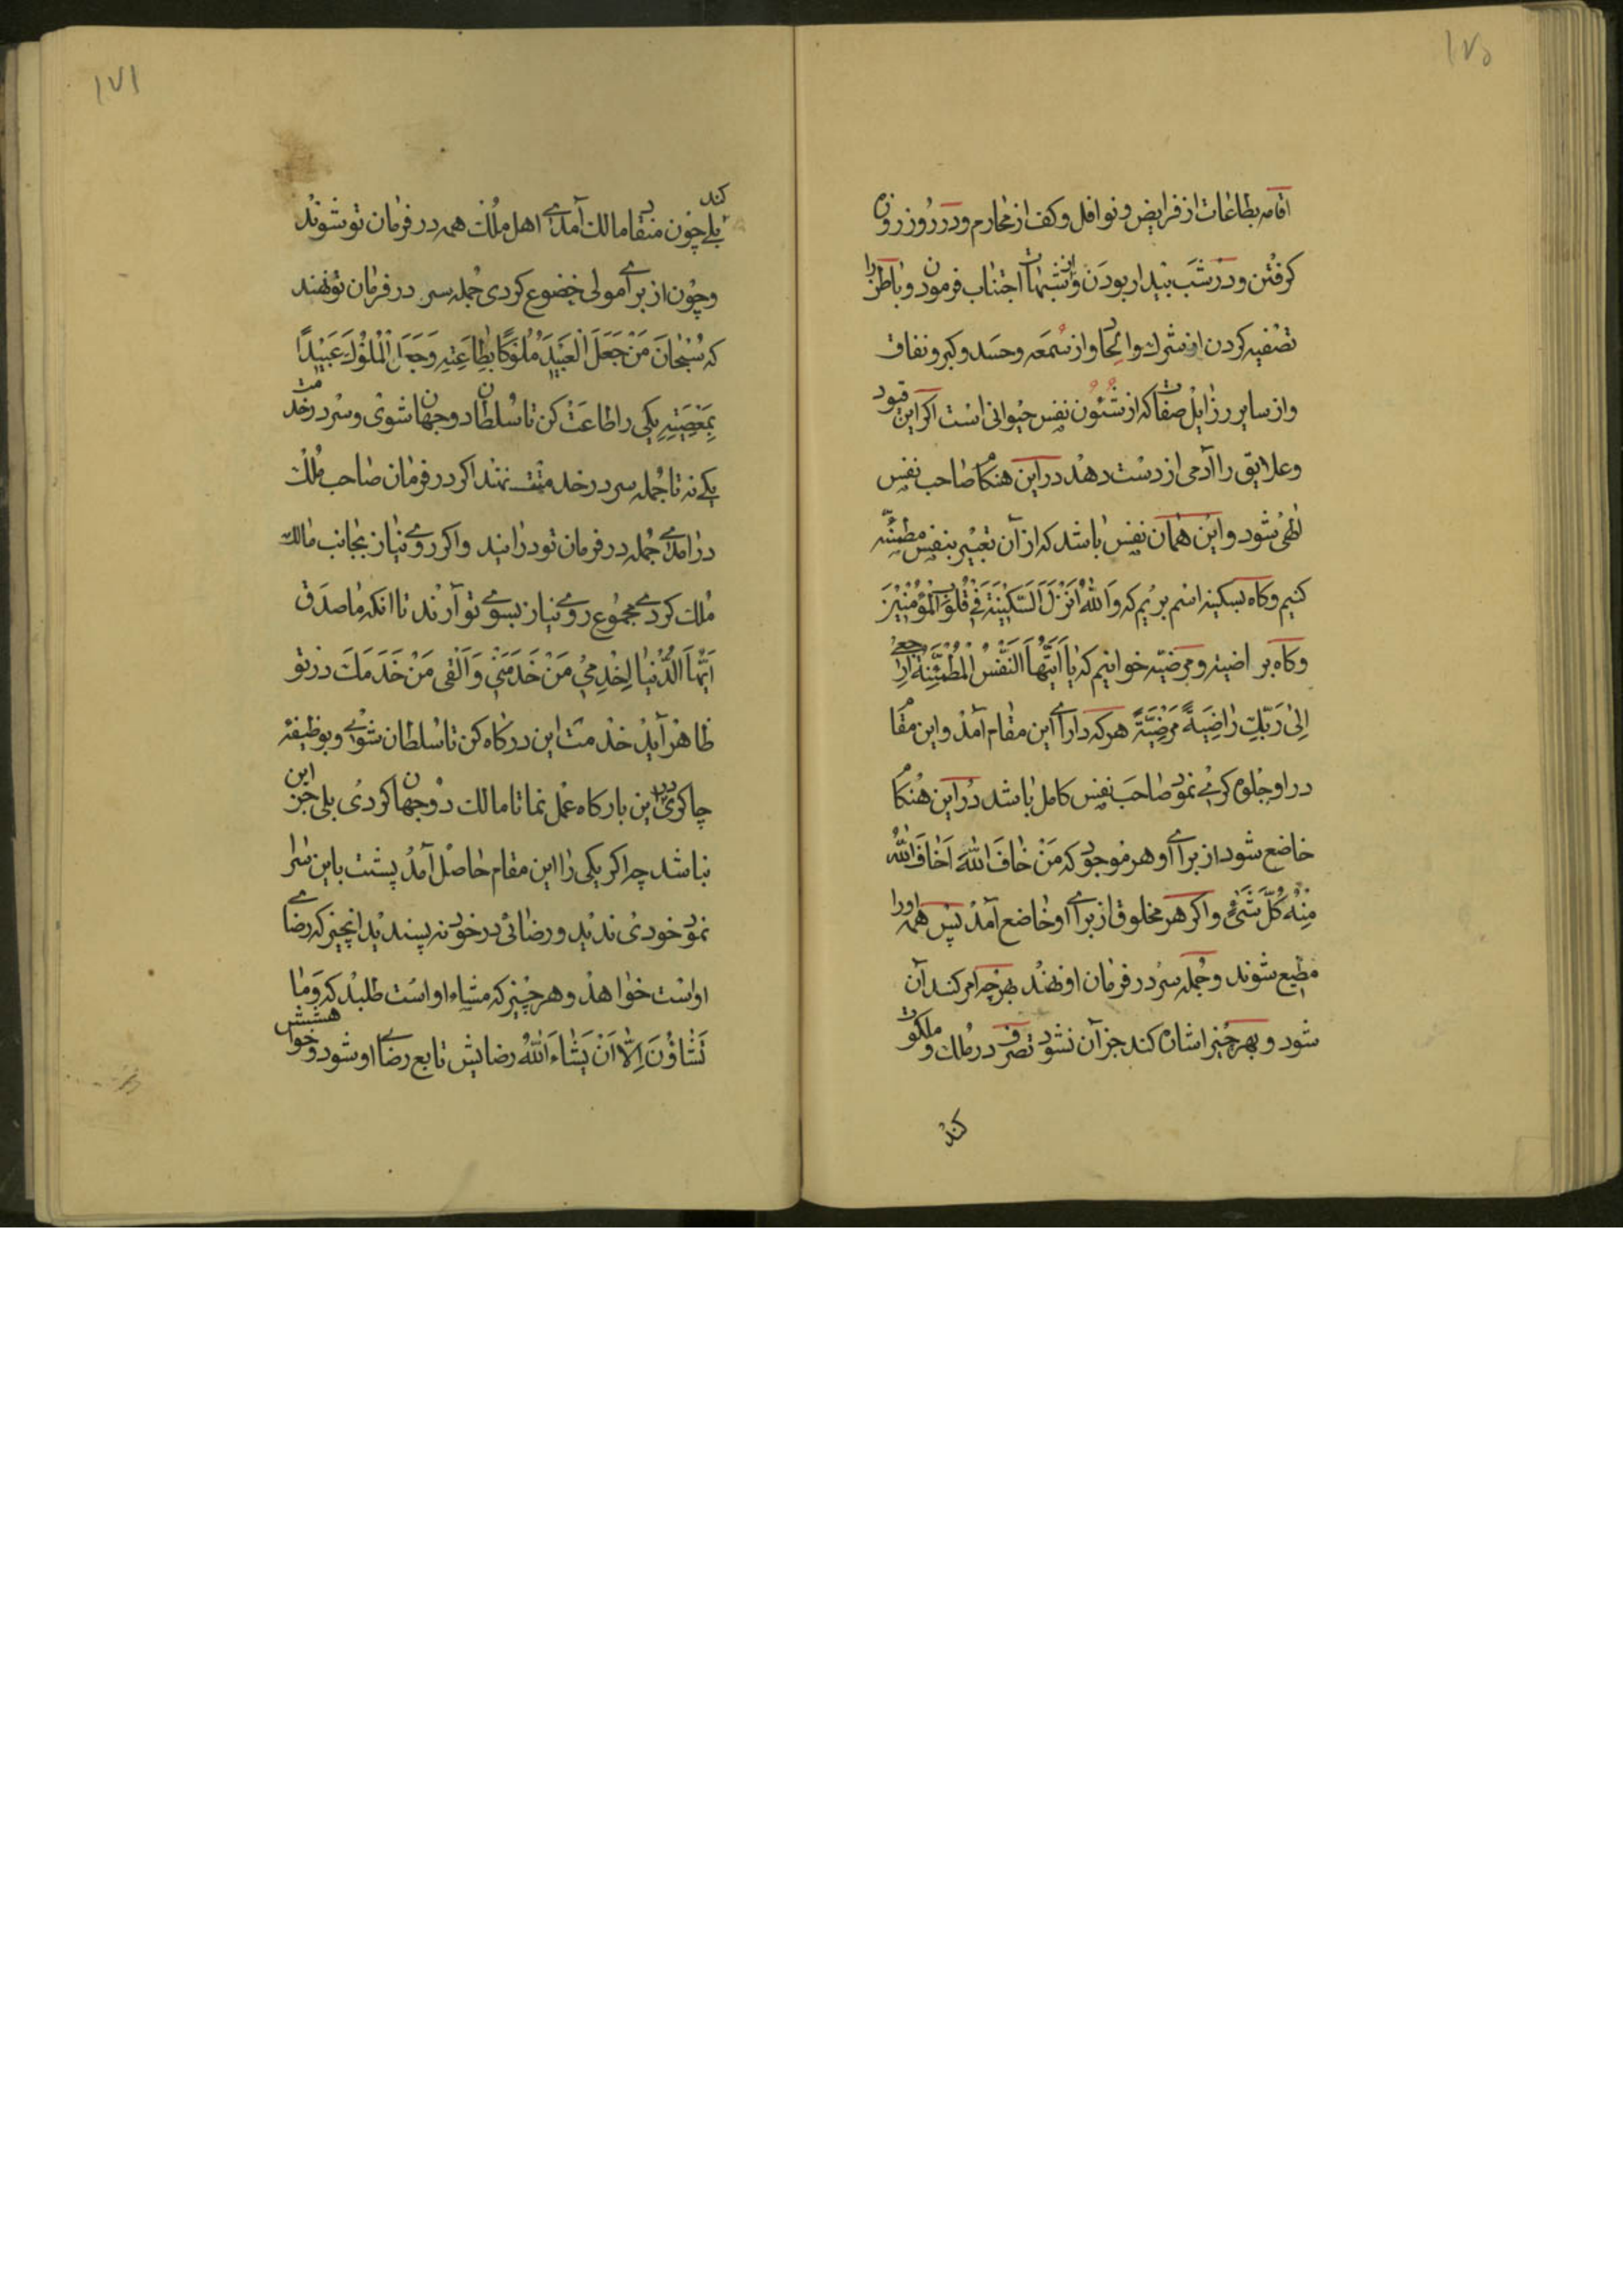 ۱۷۵
اقامه بطاعات از فرایض و نوافل و کف از محارم و در روز روزه
کرفتن و در شب بیدار بودن و از شبهات اجتناب فرمودن و باطن را
تصفیه کردن از شرک و الحاد و از سمعه و حسد و کبر و نفاق
و از سایر رزایل صفات که از شئون نفس حیوانی است اکر این قیود
و علایق را آدمی از دست دهد در این هنکام صاحب نفس
الهی شود و این همان نفس باشد که از آن تعبیر بنفس مطمئنه
کنیم و کاه بسکینه اسم بریم که وَاللهُ اَنْزَلَ السَّکینَةَ فی قُلُوبِ الْمُؤْمِنینَ
و کاه براضیه و مرضیه خوانیم که یا اَیَّتُهَا النَّفْسُ الْمُطْمَئِنَّةُ ارْجِعی
اِلی رَبِّکِ راضِیَةً مَرْضِیَّةً هر که دارای این مقام آمد و این مقام
در او جلوه کری نمود صاحب نفس کامل باشد در این هنکام
خاضع شود از برای او هر موجود که مَنْ خافَ اللهَ اَخافَ اللهُ
مِنْهُ کُلَّ شَیْءٍ و اکر هر مخلوق از برای او خاضع آمد پس همه او را
مطیع شوند و جمله سر در فرمان او نهند بهر چه امر کند آن
شود و بهر چیز اشاره کند جز آن نشود تصرف در ملک و ملکوت
کند
۱۷۱
کند
بلی چون منقاد مالک آمدی اهل ملک همه در فرمان تو شوند
و چون از برای مولی خضوع کردی جمله سر در فرمان تو نهند
که سُبْحانَ مَنْ جَعَلَ الْعَبیدَ مُلُوکًا بِطاعَتِهِ وَجَعَلَ الْمُلُوکَ عَبیدًا
بِمَعْصِیَتِهِ یکی را طاعت کن تا سلطان دو جهان شوی و سر در خدمت
یکی نه تا جمله سر در خدمتت نهند اکر در فرمان صاحب ملک
درامدی جمله در فرمان تو درایند و اکر روی نیاز بجانب مالک
ملک کردی مجموع روی نیاز بسوی تو آرند تا انکه ماصدق
اَیَّتُهَا الدُّنْیا اِخْدِمی مَنْ خَدَمَنی وَ اَلْقی مَنْ خَدَمَكَ در تو
ظاهر آید خدمت این درکاه کن تا سلطان شوی و بوظیفهٔ
چاکری در این بارکاه عمل نما تا مالک دو جهان کردی بلی جز این
نباشد چه اکر یکی را این مقام حاصل آمد پشت باین سرا
نمود خودی ندید و رضائی در خود نه پسندید انچیز که رضای
اواست خواهد و هر چیز که مشاء او است طلبد که وَما
تَشاؤُنَ اِلّا اَنْ یَشاءَ اللهُ رضایش تابع رضای او شود و خواهشش